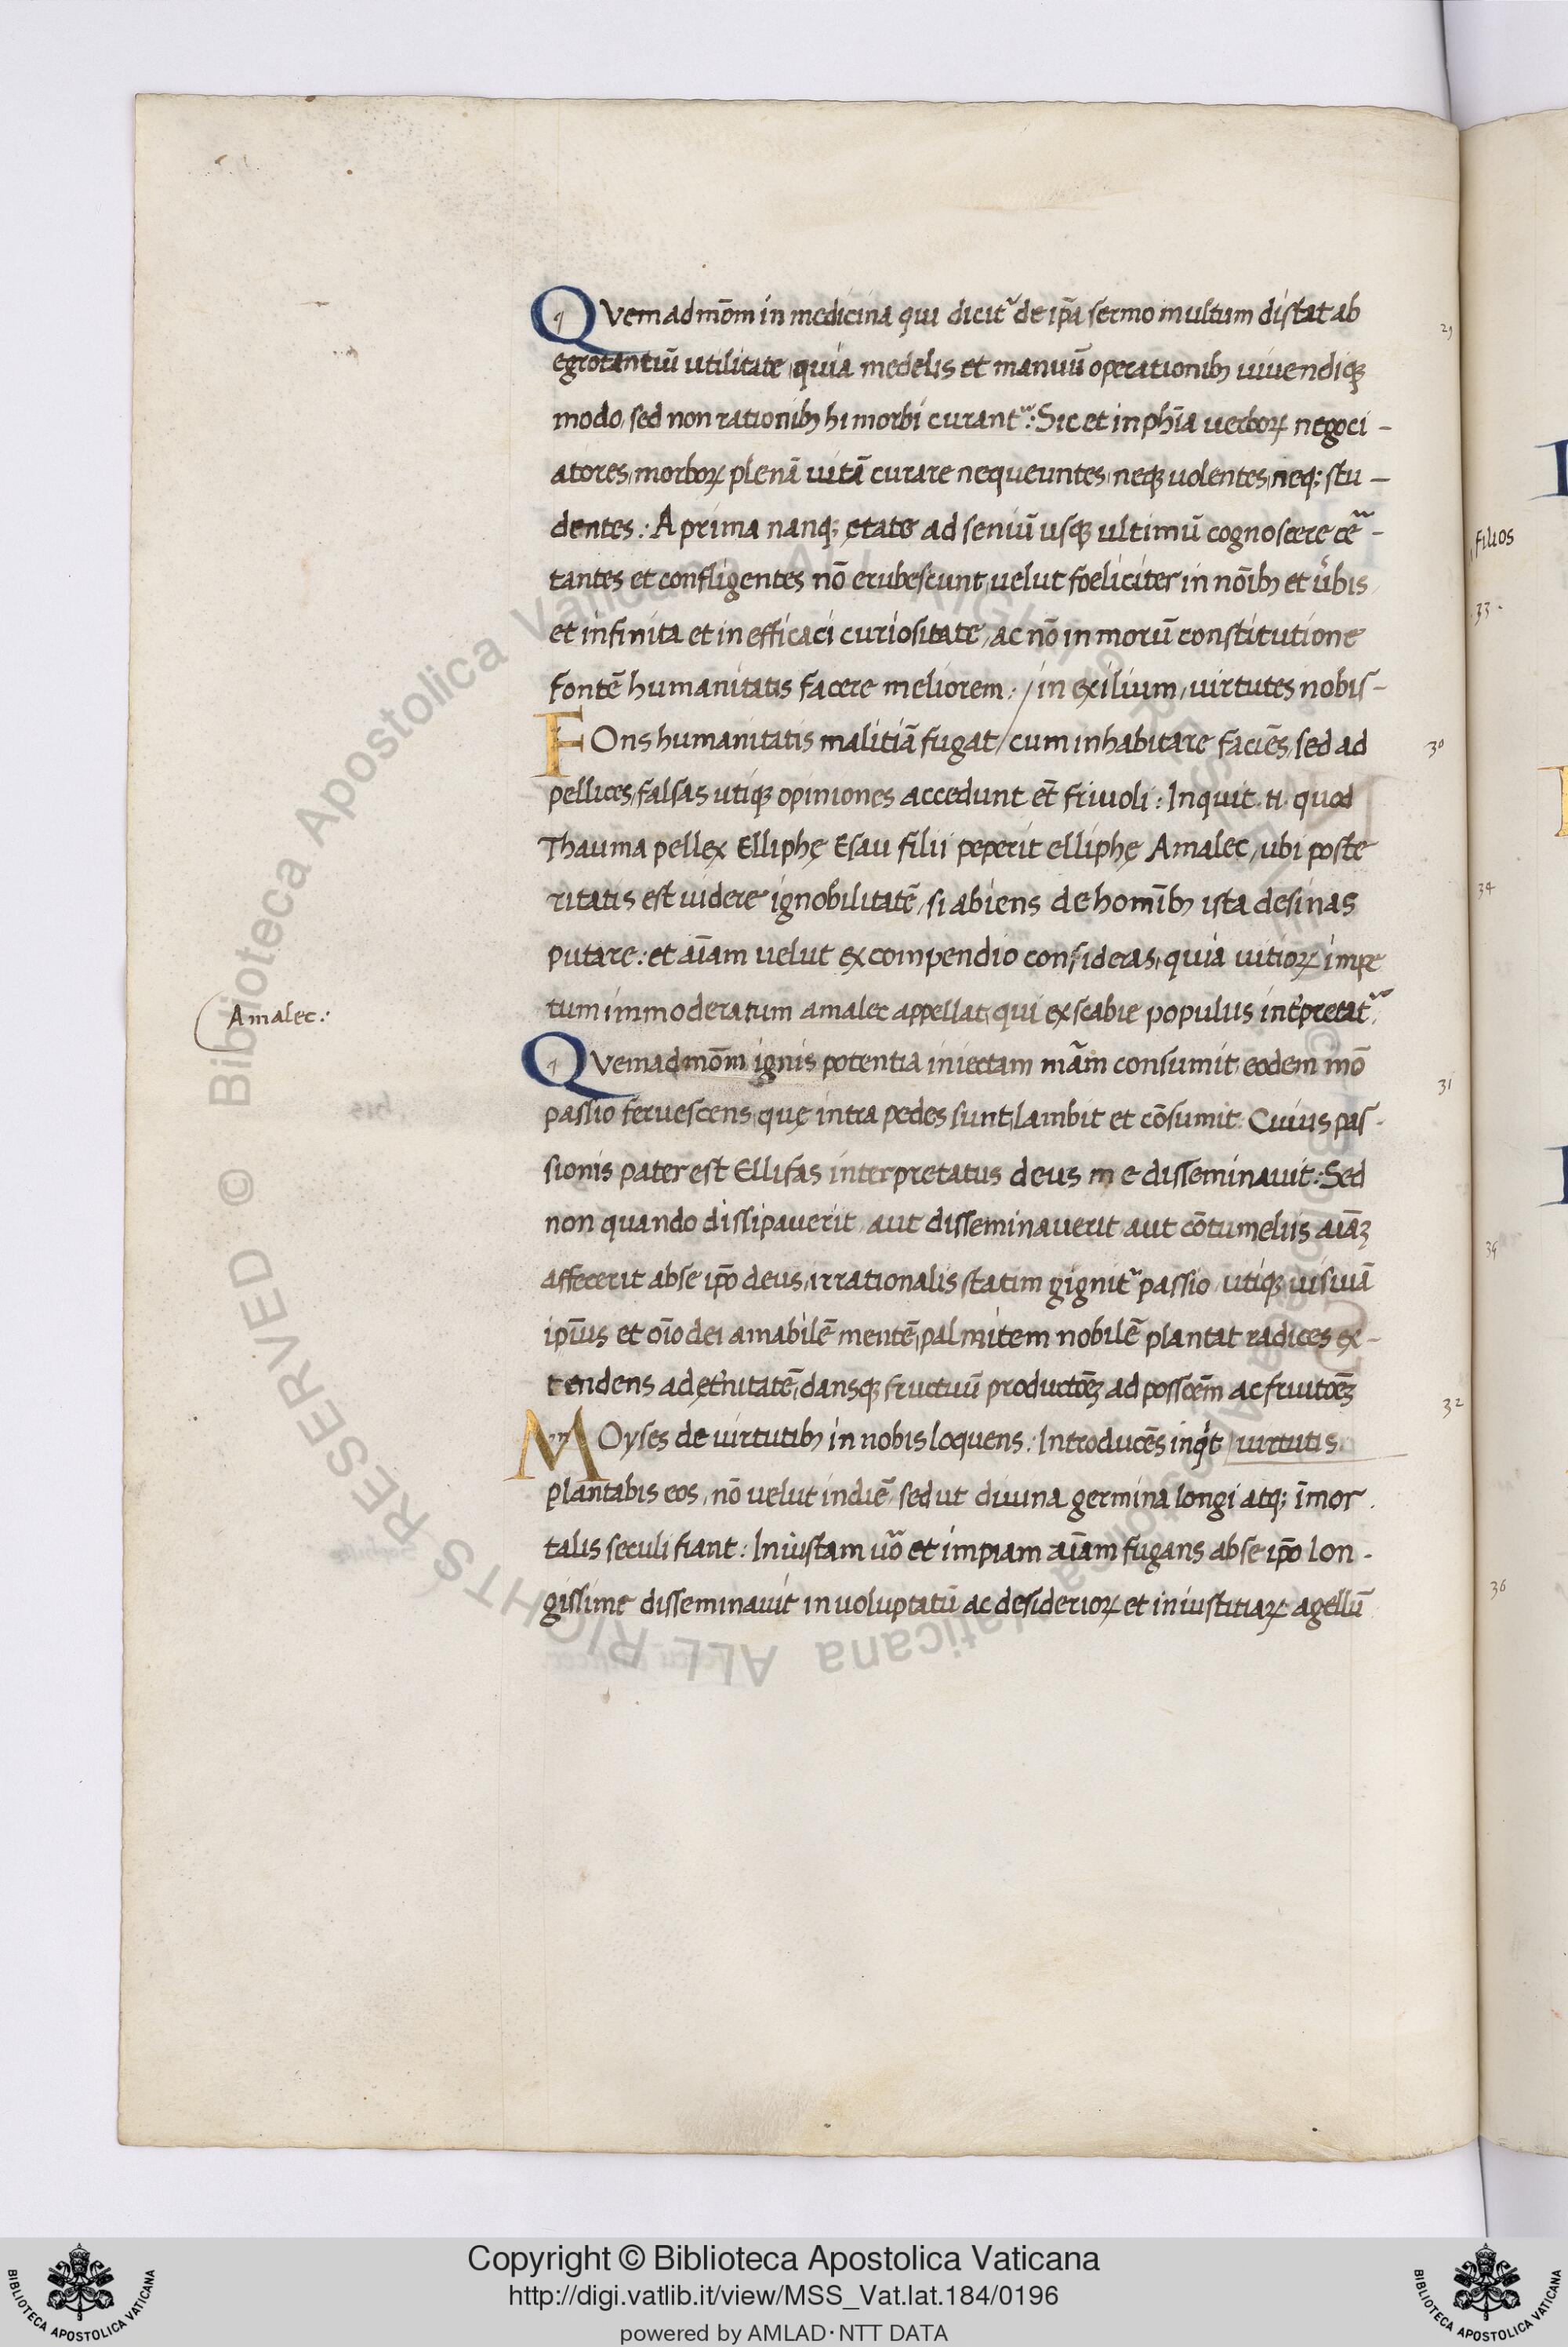 Quemadmōm in medicina qui dicit᷑ de ip̄a sermo multum distat ab
egrotantiū utilitate, quia medelis et manuū operationib; uiuendiq;
modo, sed non rationib; hi morbi curant᷑: Sic et in ph̄ia uerboꝝ negoci-
atores, morboꝝ plenā uitā curare nequeuntes, neq; uolentes, neq; stu-
dentes: A prima nanq; ętate ad seniū usq; ultimū cognoscere
tantes et confligentes nō erubescunt, uelut foeliciter in nōib; et
et infinita et inefficaci curiositate, ac nō in morū constitutione
fontē humanitatis facere meliorem: / in exilium, uirtutes nobis-
FOns humanitatis malitiā fugat / cum inhabitare faciēs, sed ad
pellices, falsas utiq; opiniones accedunt et friuoli: Inquit quod
Thauma pellex Elliphę Esau filii peperit elliphę Amalec, ubi poste
ritatis est uidere ignobilitatē, si abiens de homīb; ista desinas
putare: et aīam uelut ex compendio consideras, quia uitioꝝ impe
tum immoderatum amalec appellat, qui ex scabie populus int̄pretat᷑.
Amalec:
Quemadmōm ignis potentia iniectam mām consumit, eodem mō
passio feruescens, quę intra pedes sunt, lambit et cōsumit. Cuius pas-
sionis pater est Ellifas interpretatus deus me disseminauit: Sed
non quando dissipauerit aut disseminauerit aut cōtumeliis aīaꝫ
affecerit ab se ip̄o deus, irrationalis statim gignit᷑ passio utiq; uisiuā
ip̄ius et oīo dei amabilē mentē, palmitem nobilē plantat radices ex-
tendens ad ęt̄nitatē, dansq; fructuū productōeꝫ ad possoēm ac fruitōeꝫ
MOyses de uirtutib; in nobis loquens: Introducēs inqͥt uirtutis
plantabis eos, nō uelut in diē sed ut diuina germina longi atq; īmor.
talis seculi fiant: Iniustam u͞o et impiam aīam fugans ab se ip̄o lon-
gissime disseminauit in uoluptatū ac desiderioꝝ et iniustitiaꝝ agellū
29
30
31
32
filios
33.
34
35
36
Copyright © Biblioteca Apostolica Vaticana
http://digi.vatlib.it/view/MSS_Vat.lat.184/0196
powered by AMLAD·NTT DATA
BIBLIOTECA APOSTOLICA VATICANA
BIBLIOTECA APOSTOLICA VATICANA
© Biblioteca Apostolica Vaticana ALL RIGHTS RESERVED